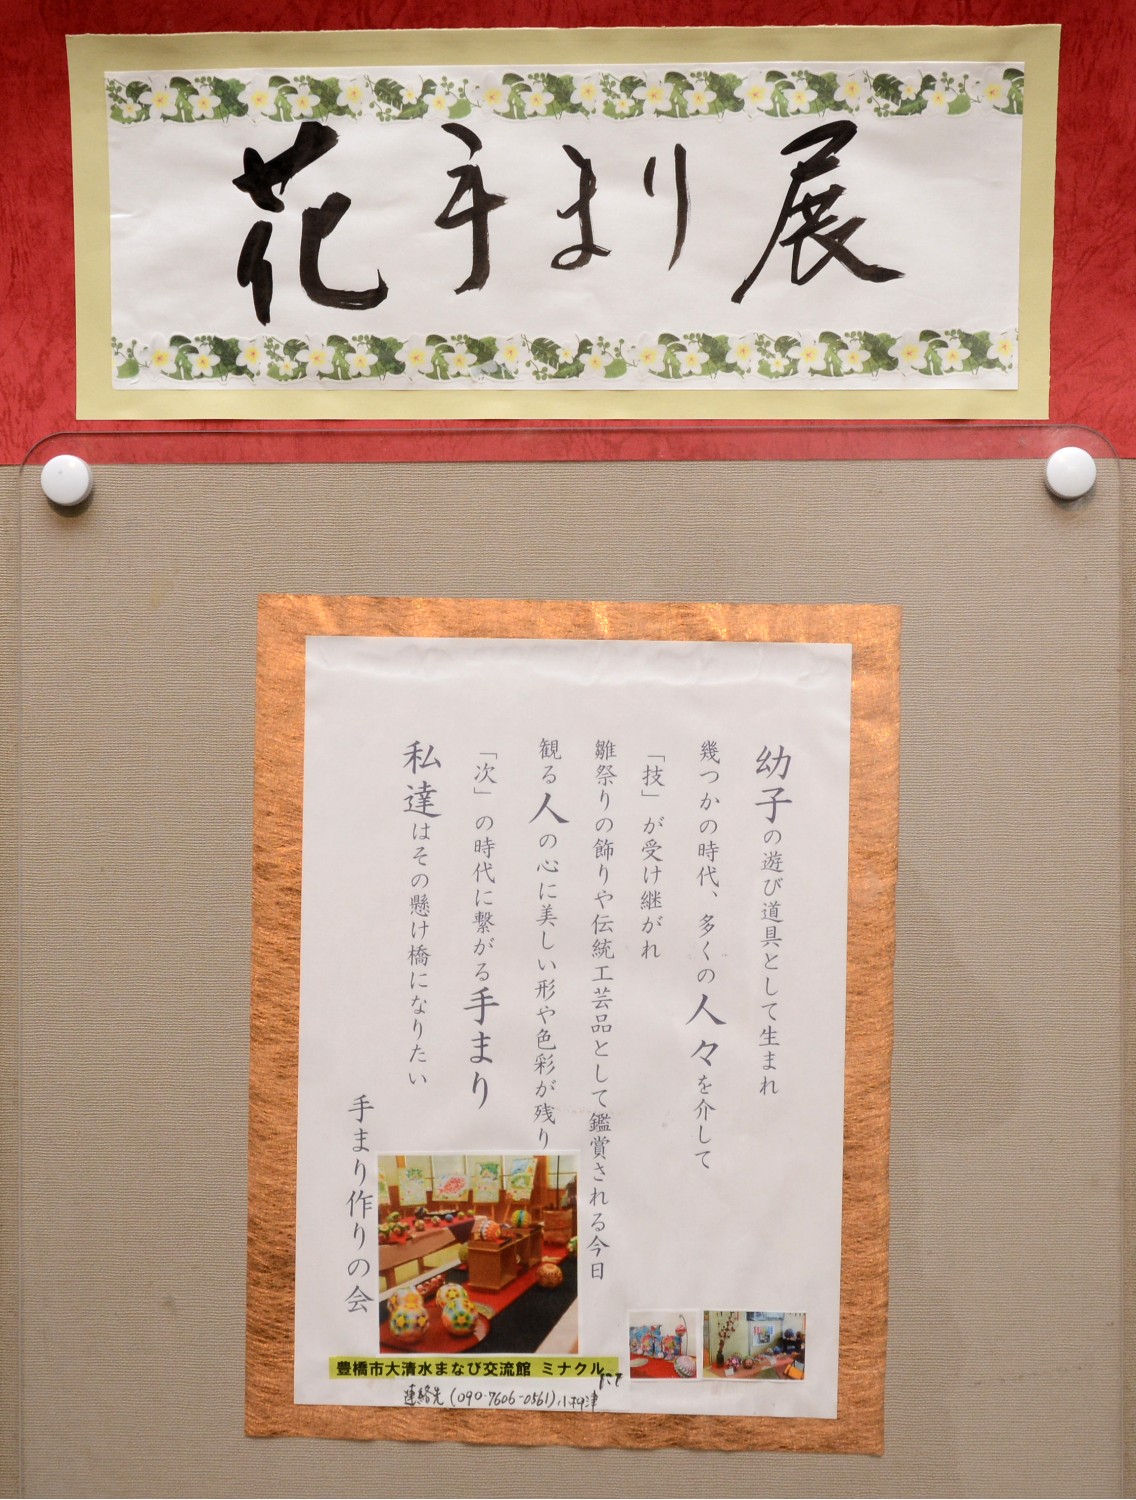 花手まり展
幼子の遊び道具として生まれ
幾つかの時代、多くの人々を介して
「技」が受け継がれ
雛祭りの飾りや伝統工芸品として鑑賞される今日
観る人の心に美しい形や色彩が残り
「次」の時代に繋がる手まり
私達はその懸け橋になりたい
手まり作りの会
豊橋市大清水まなび交流館 ミナクルにて
連絡先(090-7606-0561)小柳津